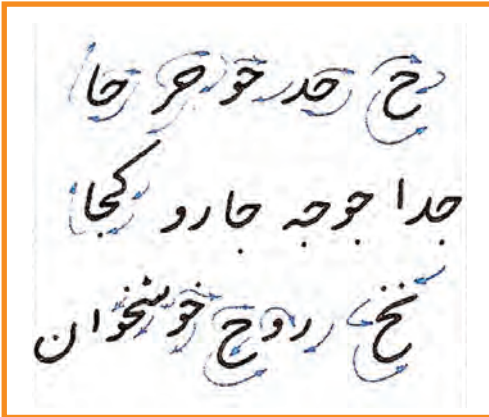 ح حد حو حر حا
جدا جوجه جارو کجا
نخ روح خوشخوان